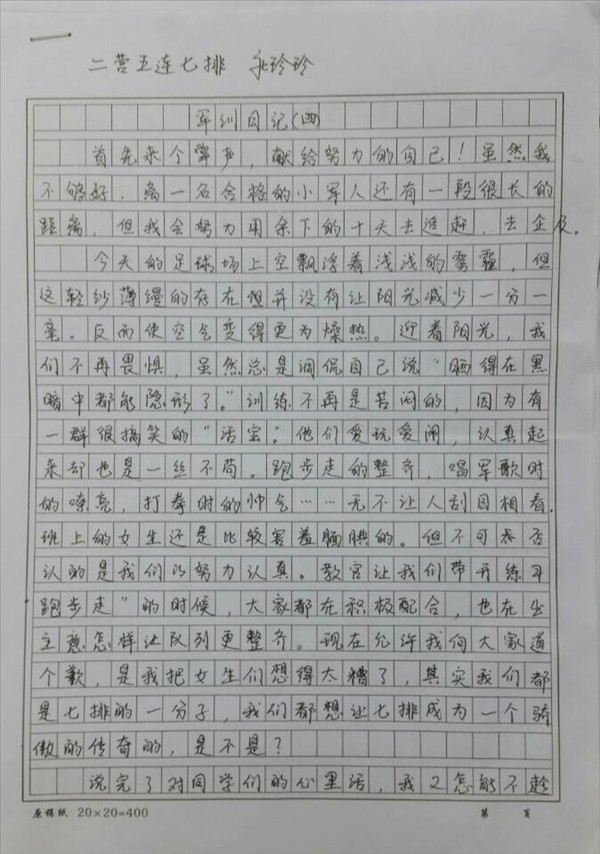 二营五连七排 张玲玲
军训日记(四)
首先来个掌声，献给努力的自己！虽然我
不够好，离一名合格的小军人还有一段很长的
距离，但我会努力用余下的十天去追赶，去企及。
今天的足球场上空飘浮着浅浅的雾霾，但
这轻纱薄缦的存在但并没有让阳光减少一分一
毫。反而使空气变得更为燥热。迎着阳光，我
们不再畏惧，虽然总是调侃自己说“晒得在黑
暗中都能隐形了。”训练不再是苦闷的，因为有
一群很搞笑的“活宝”。他们爱玩爱闹，认真起
来却也是一丝不苟。跑步走的整齐，唱军歌时
的嘹亮，打拳时的帅气……无不让人刮目相看。
班上的女生还是比较害羞腼腆的。但不可否
认的是我们的努力认真。教官让我们带开练习
跑步走”的时候，大家都在积极配合，也在出
主意怎样让队列更整齐。现在允许我向大家道
个歉，是我把女生们想得太糟了，其实我们都
是七排的一分子，我们都想让七排成为一个骄
傲的传奇的，是不是？
说完了对同学们的心里话，我又怎能不趁
原稿纸 20×20=400 第 页